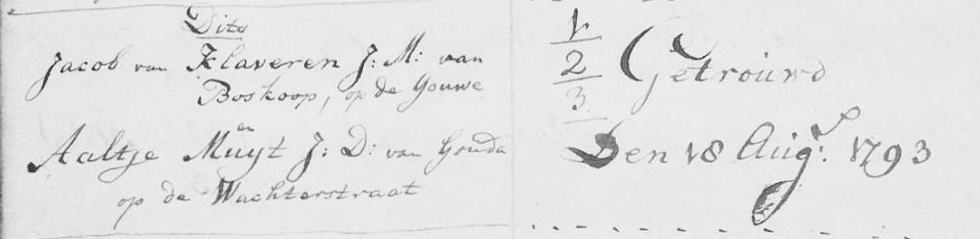 Dito
Jacob van Klaveren J: M: van
Boskoop, op de Gouwe
en
Aaltje Muyt J: D: van Gouda
op de Wachterstraat
1
2
3
Getrouwd
Den 18 Aug: 1793